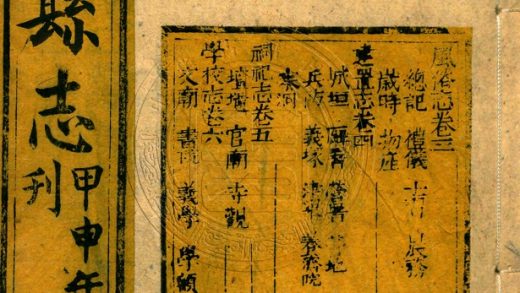 風俗志卷三
總記 禮儀 農務
歲時 物產
建置志卷四
城垣 營署 地
兵防 義塚 養濟院
祠祀志卷五
壇壝 官廟 寺觀
學校志卷六
文廟 書院 義學 學額
縣志
甲申年
刊